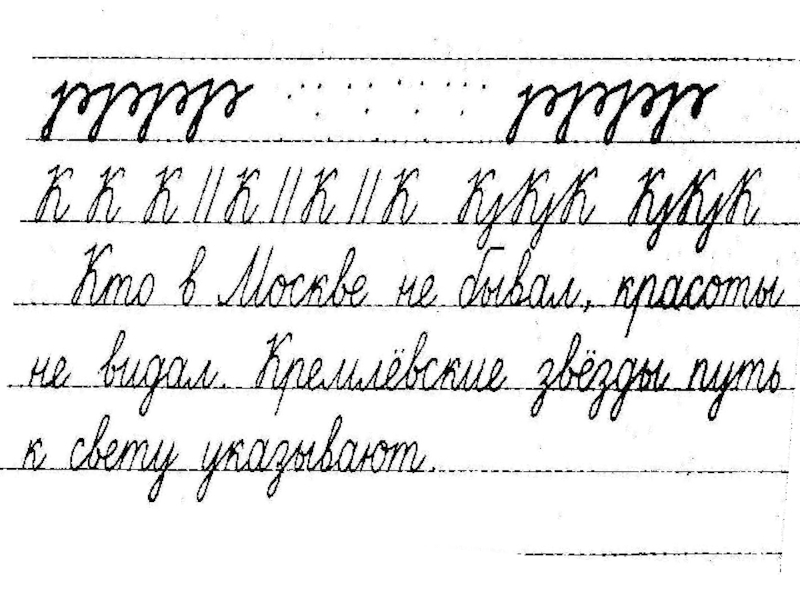 К К К // К // К // К КjКjК КjКjК
Кто в Москве не бывал, красоты
не видал. Кремлёвские звёзды путь
к свету указывают.